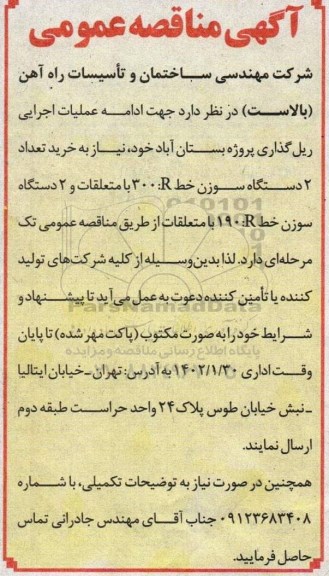 آگهی مناقصه عمومی
شرکت مهندسی ساختمان و تأسیسات راه آهن
(بالاست) در نظر دارد جهت ادامه عملیات اجرایی
ریل گذاری پروژه بستان آباد خود، نیاز به خرید تعداد
۲ دستگاه سوزن خط R:۳۰۰ با متعلقات و ۲ دستگاه
سوزن خط R:۱۹۰ با متعلقات از طریق مناقصه عمومی تک
مرحله‌ای دارد. لذا بدین‌وسیله از کلیه شرکت‌های تولید
کننده یا تأمین کننده دعوت به عمل می‌آید تا پیشنهاد و
ParsNamadData
شرایط خود را به صورت مکتوب (پاکت مهر شده) تا پایان
پایگاه اطلاع رسانی مناقصه و مزایده
وقت اداری ۱۴۰۲/۱/۳۰ به آدرس: تهران ـ خیابان ایتالیا
ـ نبش خیابان طوس پلاک ۲۴ واحد حراست طبقه دوم
ارسال نمایند.
همچنین در صورت نیاز به توضیحات تکمیلی، با شماره
۰۹۱۲۳۶۸۳۴۰۸ جناب آقای مهندس جادرانی تماس
حاصل فرمایید.